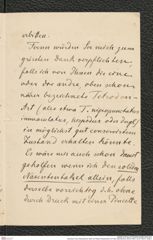 erbitten.
Ferner würden Sie mich zum
grössten Dank verpflichten,
falls ich von Ihnen die eine
oder das andre, oben schon
näher bezeichnete Tetrodon-
Art (also etwa T. nigropunctatus
immaculatus, hispidus oder dergl)
in möglichst gut conserviertem
Zustand erhalten könnte.
Es wäre mir auch schon damit
geholfen wenn ich den
allein, falls
derselbe vorsichtig d.h. ohne
durch Druck mit einer Pincette